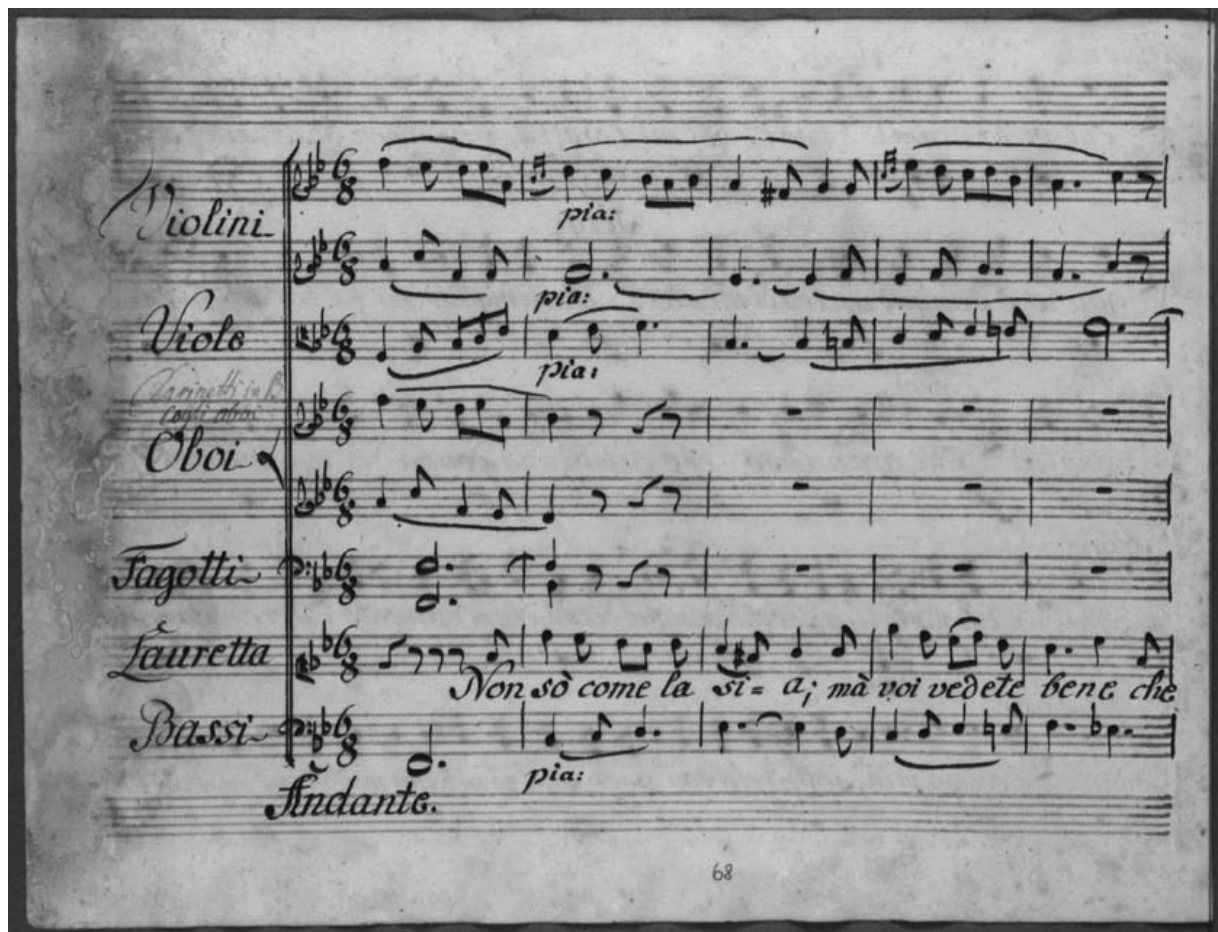 Violini
pia:
pia:
Viole
pia:
Clarinetti in B
cogli oboi
Oboi
Fagotti
Lauretta
Non sò come la si = a; mà voi vedete bene che
Bassi
pia:
Andante.
68